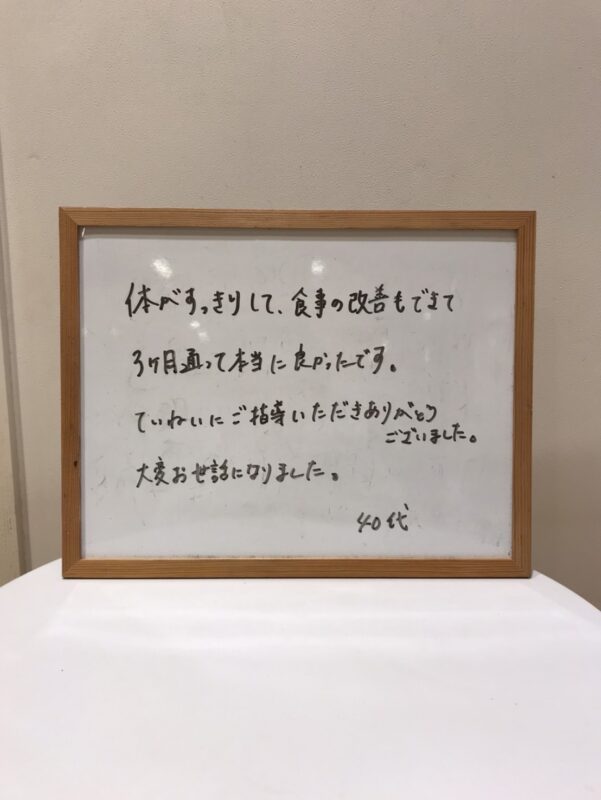 体がすっきりして、食事の改善もできて
3ヶ月通って本当に良かったです。
ていねいにご指導いただきありがとう
ございました。
大変お世話になりました。
40代